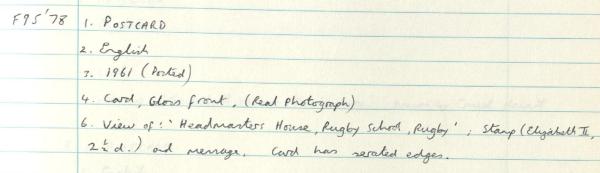 F95'78 1. POSTCARD
2. English
3. 1961 (Posted)
4. Card, Gloss front, (Real photograph)
6. View of: 'Headmasters House, Rugby School, Rugby'; Stamp (Elizabeth II,
2½d.) and message. Card has serated edges.